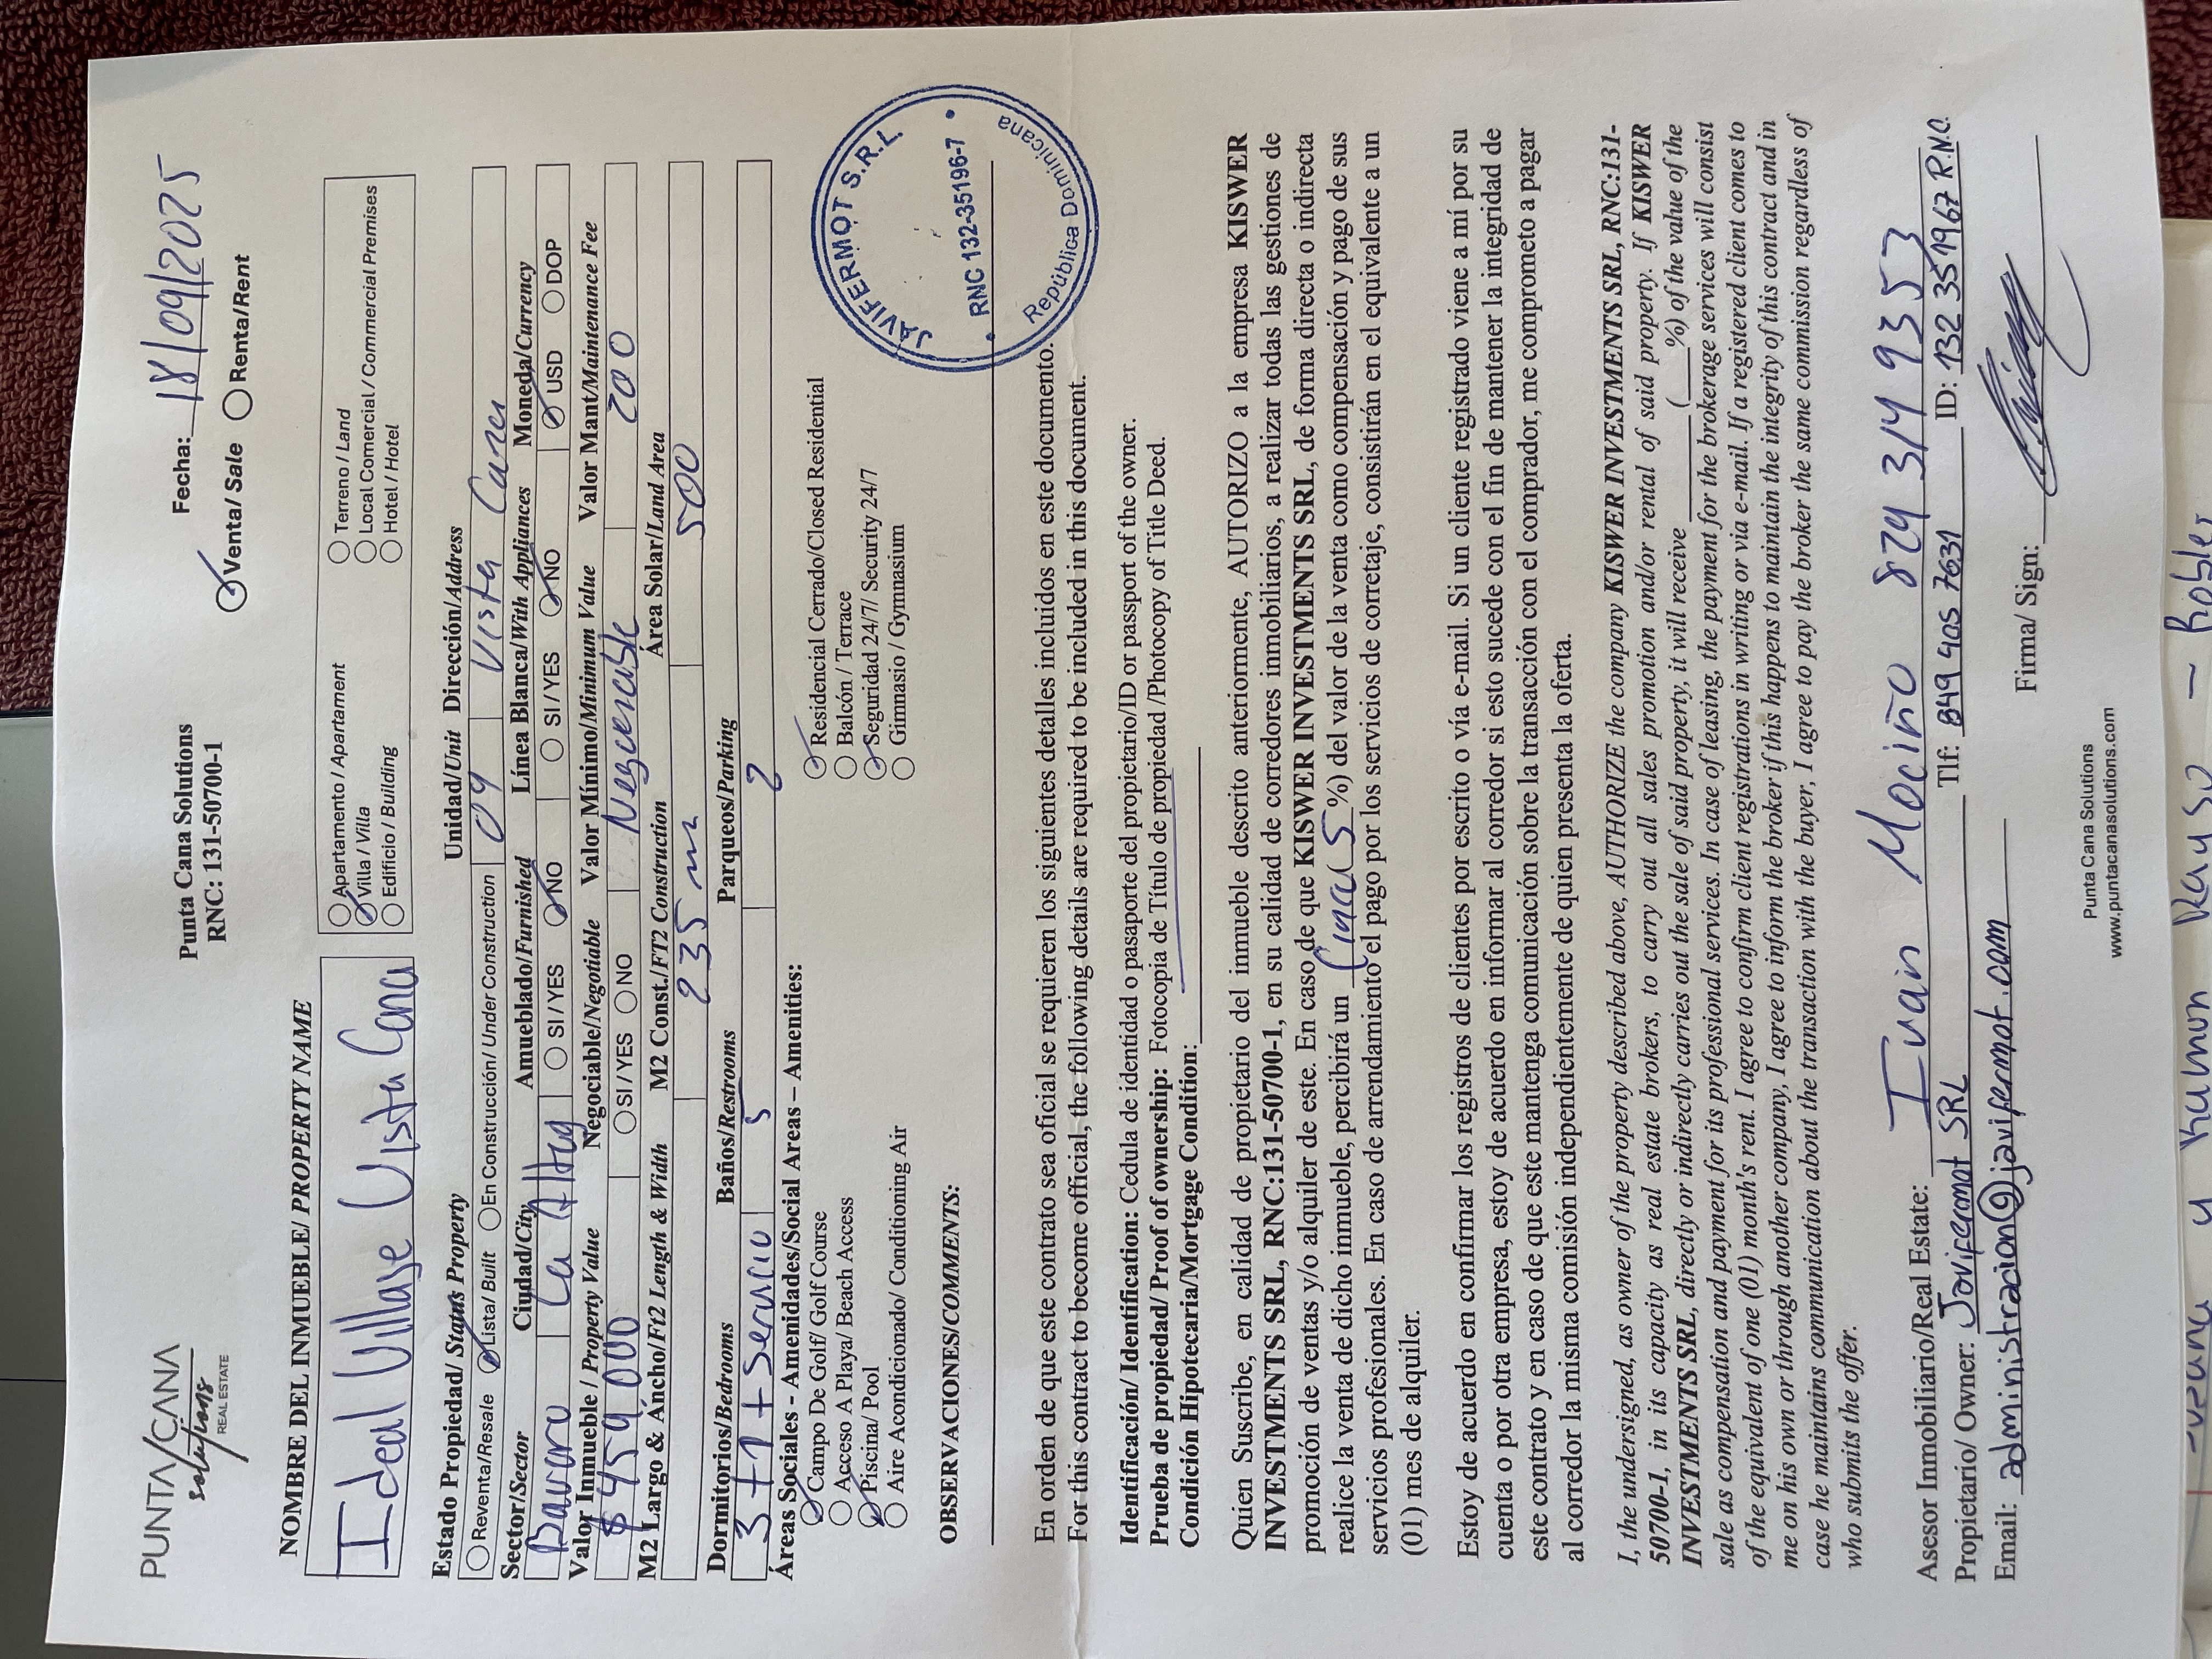 PUNTA/CANA
solutions
REAL ESTATE
Punta Cana Solutions
RNC: 131-50700-1
Fecha: 18/09/2025
Venta/ Sale Renta/Rent
NOMBRE DEL INMUEBLE/ PROPERTY NAME
Ideal Village Vista Cana
Apartamento / Apartament
Villa / Villa
Edificio / Building
Terreno / Land
Local Comercial / Commercial Premises
Hotel / Hotel
Estado Propiedad/ Status Property Unidad/Unit Dirección/Address
Reventa/Resale Lista/ Built En Construcción/ Under Construction 09 Vista Cana
Sector/Sector Ciudad/City Amueblado/Furnished Línea Blanca/With Appliances Moneda/Currency
Bavaro La Altag SI / YES NO SI / YES NO USD DOP
Valor Inmueble / Property Value Negociable/Negotiable Valor Mínimo/Minimum Value Valor Mant/Maintenance Fee
$ 459 000 SI / YES NO 200
M2 Largo & Ancho/Ft2 Length & Width M2 Const./FT2 Construction Área Solar/Land Area
235 m 500
Dormitorios/Bedrooms Baños/Restrooms Parqueos/Parking
3 + 1 + Servicio 5 2
Áreas Sociales - Amenidades/Social Areas – Amenities:
Campo De Golf/ Golf Course
Acceso A Playa/ Beach Access
Piscina/ Pool
Aire Acondicionado/ Conditioning Air
Residencial Cerrado/Closed Residential
Balcón / Terrace
Seguridad 24/7/ Security 24/7
Gimnasio / Gymnasium
OBSERVACIONES/COMMENTS:
JAVIFERMOT S.R.L.
RNC 132-35196-7
República Dominicana
En orden de que este contrato sea oficial se requieren los siguientes detalles incluidos en este documento.
For this contract to become official, the following details are required to be included in this document.
Identificación/ Identification: Cedula de identidad o pasaporte del propietario/ID or passport of the owner.
Prueba de propiedad/ Proof of ownership: Fotocopia de Título de propiedad /Photocopy of Title Deed.
Condición Hipotecaria/Mortgage Condition:
Quien Suscribe, en calidad de propietario del inmueble descrito anteriormente, AUTORIZO a la empresa KISWER
INVESTMENTS SRL, RNC:131-50700-1, en su calidad de corredores inmobiliarios, a realizar todas las gestiones de
promoción de ventas y/o alquiler de este. En caso de que KISWER INVESTMENTS SRL, de forma directa o indirecta
realice la venta de dicho inmueble, percibirá un (5 %) del valor de la venta como compensación y pago de sus
servicios profesionales. En caso de arrendamiento el pago por los servicios de corretaje, consistirán en el equivalente a un
(01) mes de alquiler.
Estoy de acuerdo en confirmar los registros de clientes por escrito o vía e-mail. Si un cliente registrado viene a mí por su
cuenta o por otra empresa, estoy de acuerdo en informar al corredor si esto sucede con el fin de mantener la integridad de
este contrato y en caso de que este mantenga comunicación sobre la transacción con el comprador, me comprometo a pagar
al corredor la misma comisión independientemente de quien presenta la oferta.
I, the undersigned, as owner of the property described above, AUTHORIZE the company KISWER INVESTMENTS SRL, RNC:131-
50700-1, in its capacity as real estate brokers, to carry out all sales promotion and/or rental of said property. If KISWER
INVESTMENTS SRL, directly or indirectly carries out the sale of said property, it will receive ______(___%) of the value of the
sale as compensation and payment for its professional services. In case of leasing, the payment for the brokerage services will consist
of the equivalent of one (01) month's rent. I agree to confirm client registrations in writing or via e-mail. If a registered client comes to
me on his own or through another company, I agree to inform the broker if this happens to maintain the integrity of this contract and in
case he maintains communication about the transaction with the buyer, I agree to pay the broker the same commission regardless of
who submits the offer.
Asesor Inmobiliario/Real Estate: Ivan Mociño 829 314 9353
Propietario/ Owner: Javifermot SRL Tlf: 849 405 7631 ID: 132 351967 R.N.C.
Email: administracion@javifermot.com Firma/ Sign:
Punta Cana Solutions
www.puntacanasolutions.com